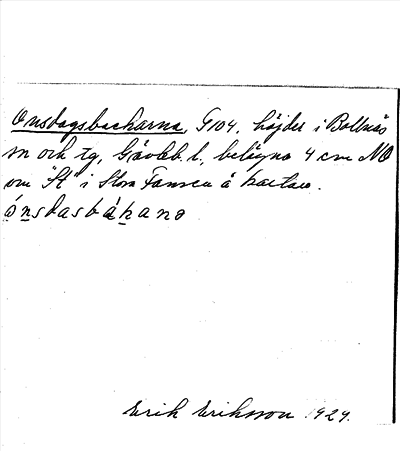 Onsdagsbackarna, G104, höjder i Bollnäs
sn och tg, Gävleb. l., belägna 4 cm NO
om "St" i Stora Fansen å kartan.
ónsdasbákanə
Erik Eriksson 1929.